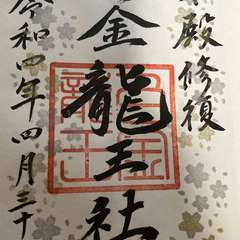 殿修復
金龍王社
令和四年四月三十